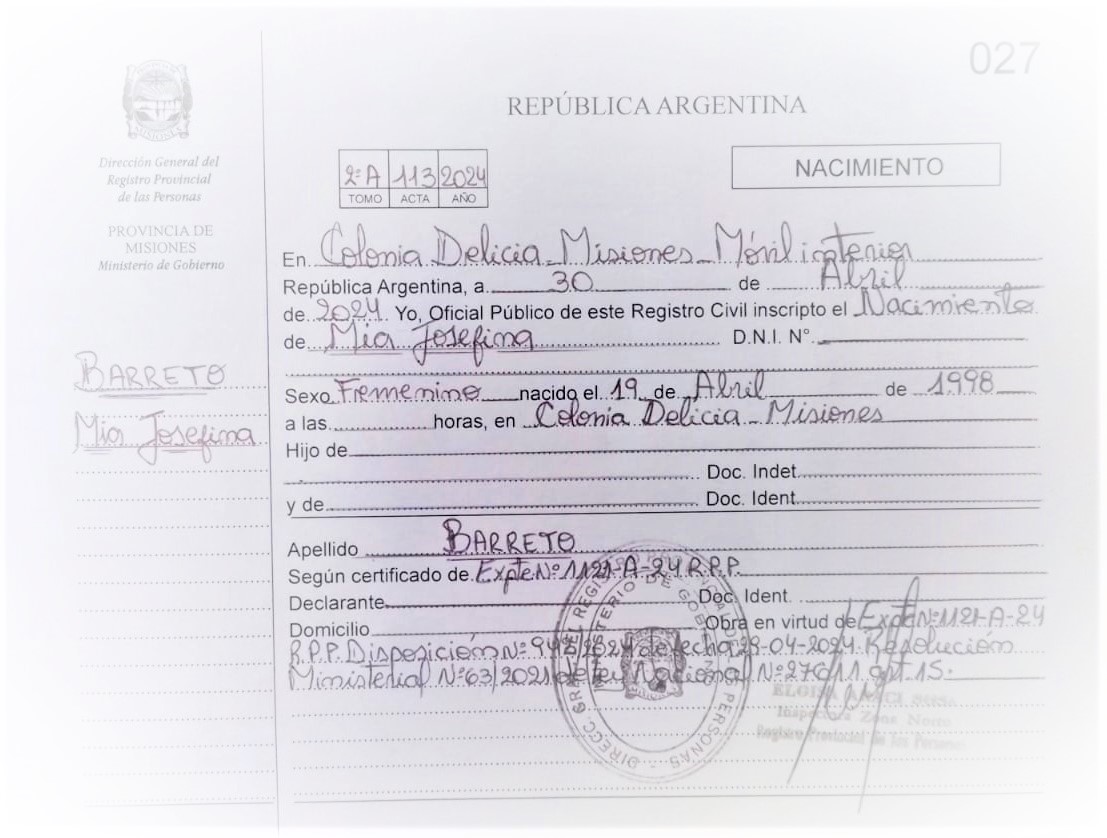 027
REPÚBLICA ARGENTINA
MISIONES
Dirección General del
Registro Provincial
de las Personas
PROVINCIA DE
MISIONES
Ministerio de Gobierno
2ºA 113 2024
TOMO ACTA AÑO
NACIMIENTO
En Colonia Delicia - Misiones - Móvil interior
República Argentina, a 30 de Abril
de 2024 Yo, Oficial Público de este Registro Civil inscripto el Nacimiento
de Mia Josefina D.N.I. N°
BARRETO
Mia Josefina
Sexo Femenino nacido el 19 de Abril de 1998
a las horas, en Colonia Delicia - Misiones
Hijo de
Doc. Indet.
y de Doc. Ident.
Apellido BARRETO
Según certificado de Expte Nº 1121-A-24 R.P.P.
Declarante Doc. Ident.
Domicilio Obra en virtud de Expte Nº 1121-A-24
R.P.P. Disposición Nº /2024 de fecha 29-04-2024 Resolución
Ministerial Nº 63/2021 de Ley Nacional Nº art 15.
DIRECC. GRAL. DEL REGISTRO PROVINCIAL DE LAS PERSONAS
MINISTERIO DE GOBIERNO
ELOISA
Inspectora Zona Norte
Registro Provincial de las Personas